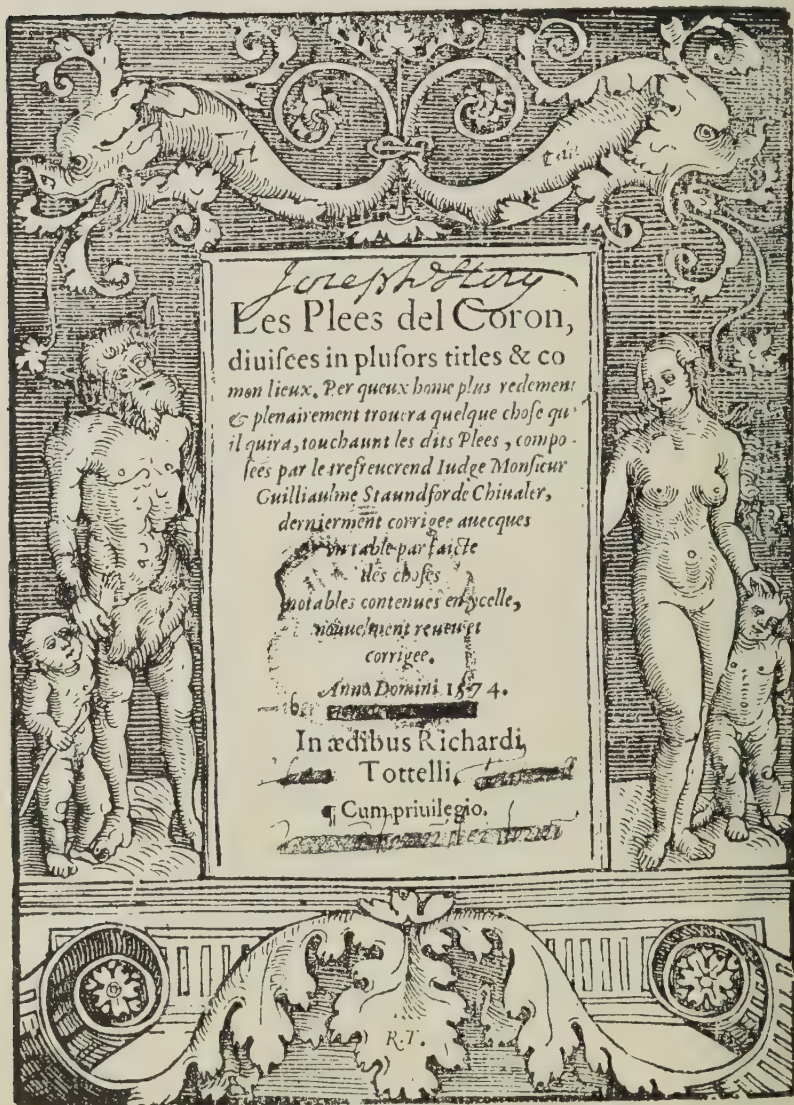 Joseph Story
Les Plees del Coron,
diuisees in plusors titles & co
mon lieux. Per queux home plus redement
& plenairement trouera quelque chose qu'
il quira, touchaunt les dits Plees, compo-
sées par le tresreuerend Iudge Monsieur
Guilliaulme Staundforde Chiualer,
dernierment corrigee auecques
vn table parfaicte
des choses
notables contenues en ycelle,
nouuelment reueu et
corrigee.
Anno Domini 1574.
In ædibus Richardi
Tottelli.
¶ Cum priuilegio.
R.T.